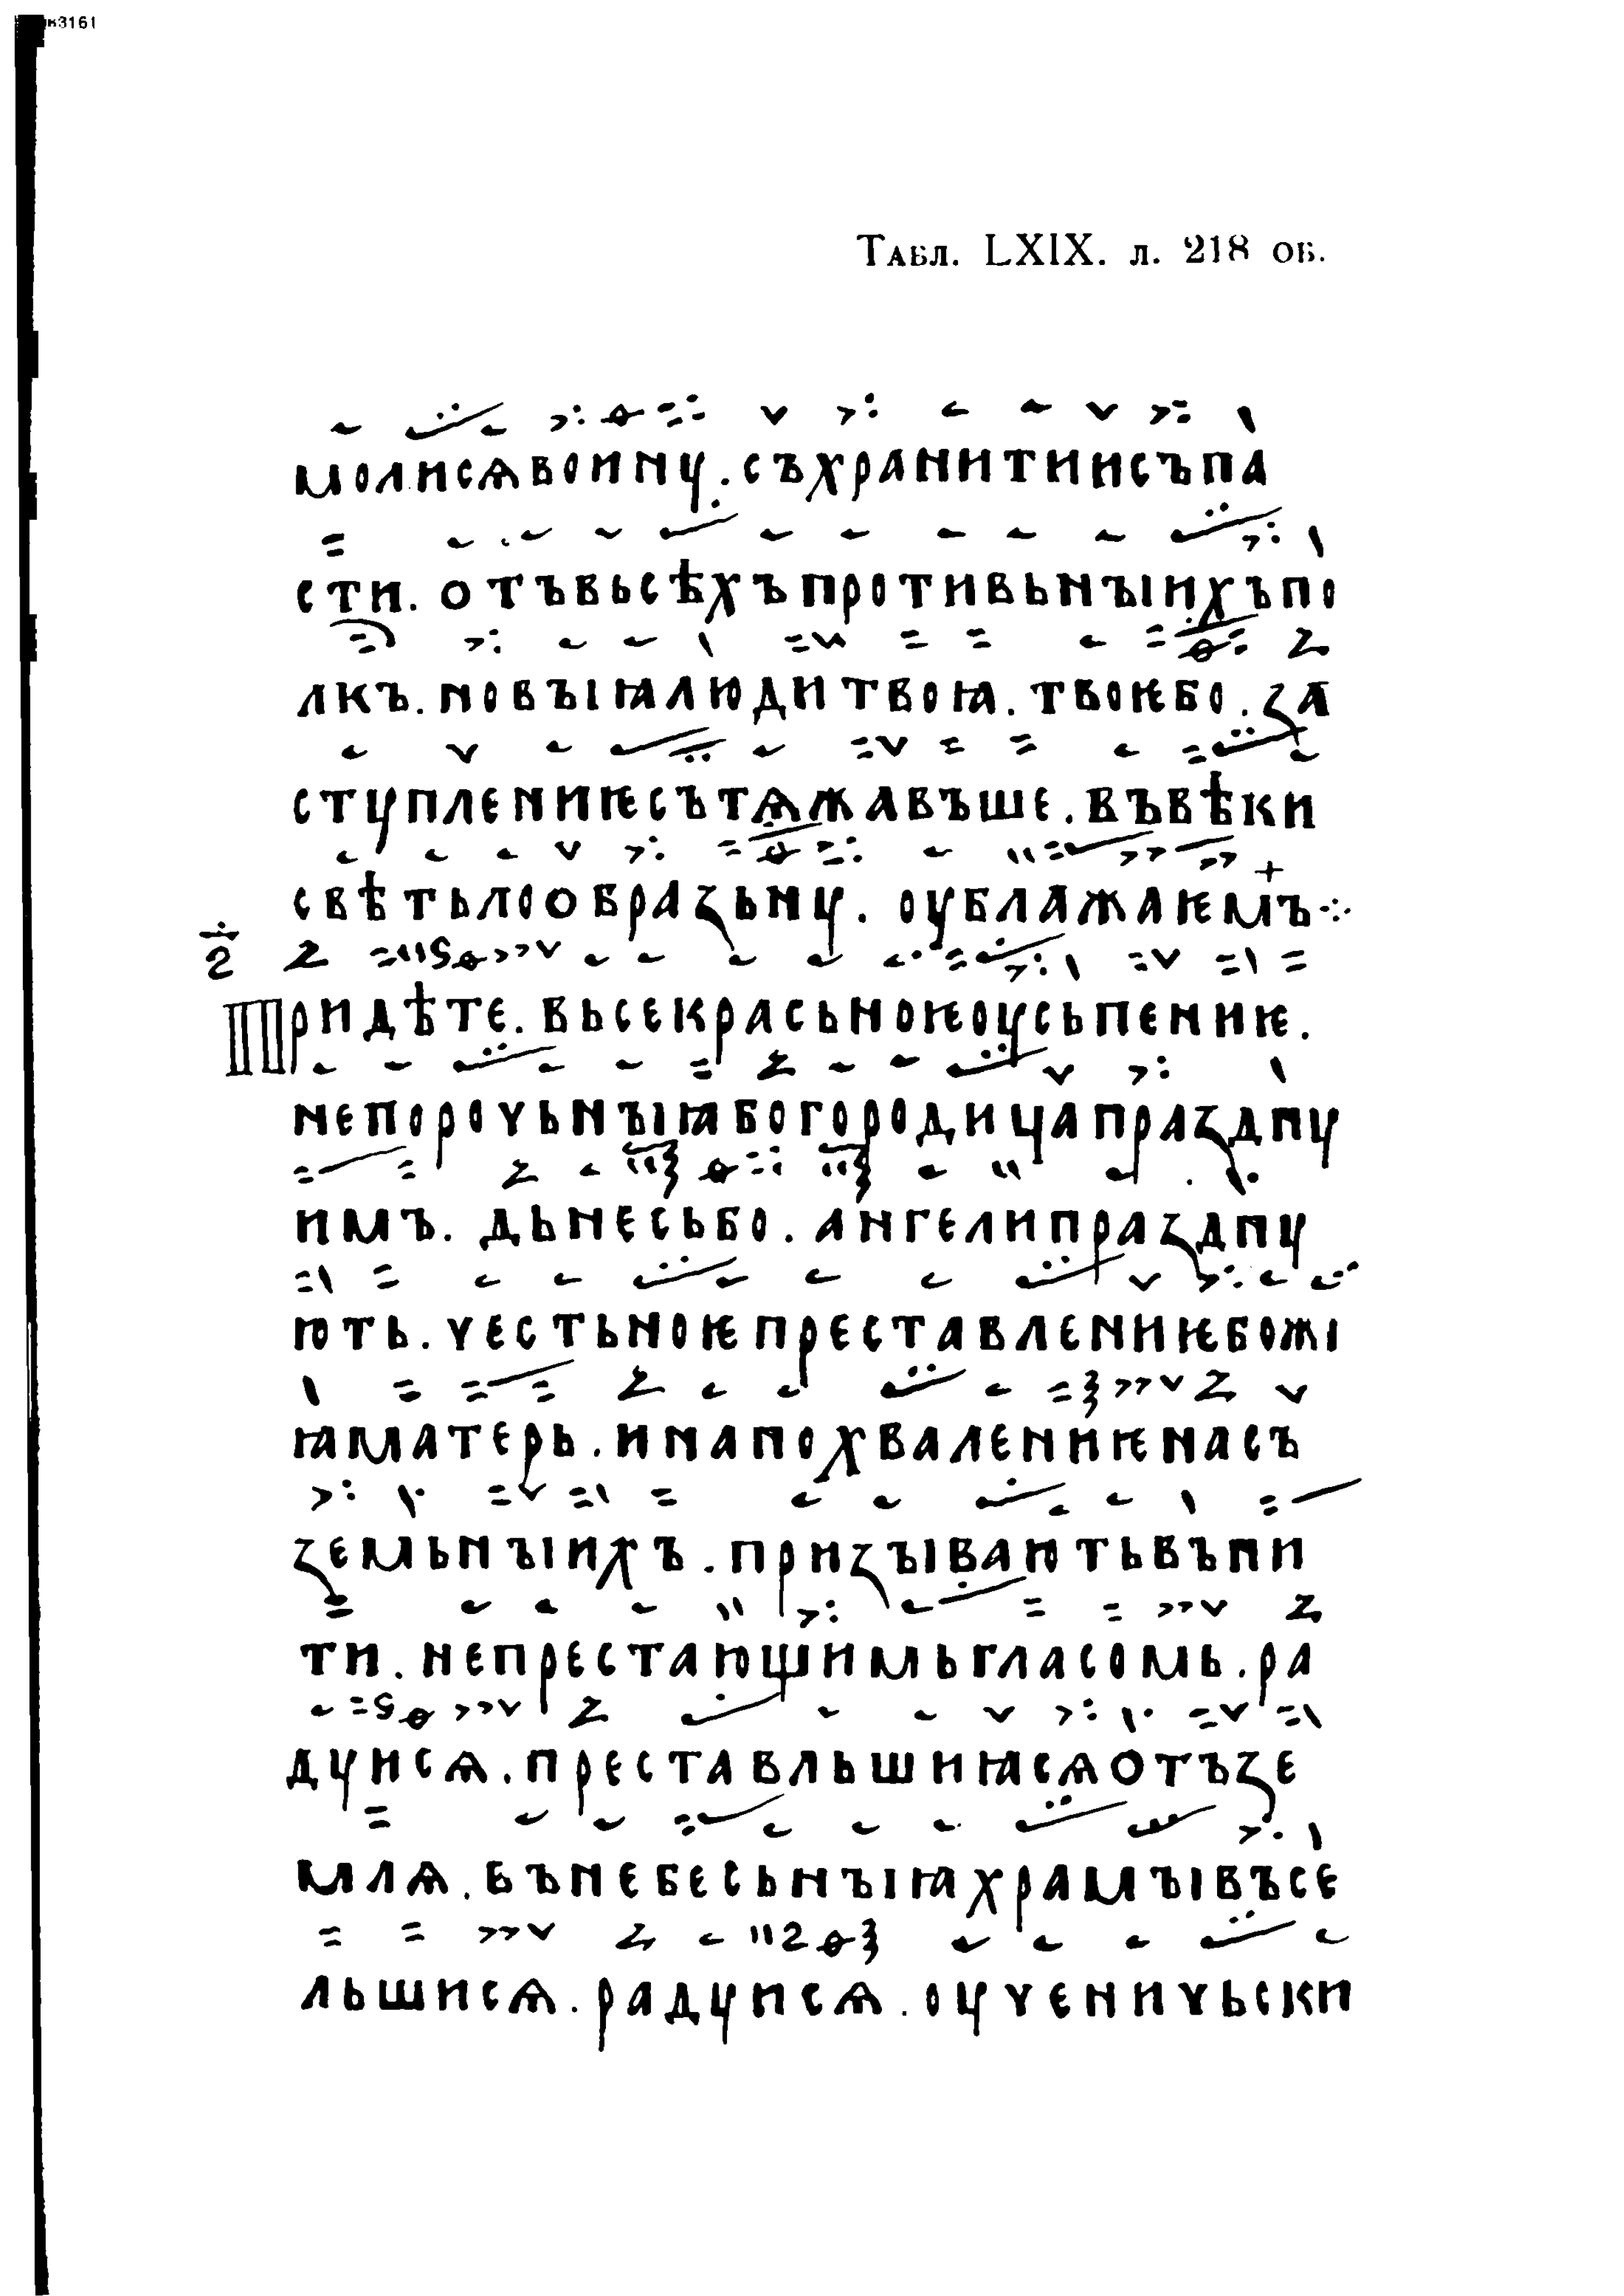 к3161
Табл. LXIX. л. 218 об.
молисѧвоину. съхранитиисъпа
сти. отъвьсѣхъпротивьнъıихъпо
лкъ. новъıꙗлюдитвоꙗ. твоѥбо. ꙁа
ступлениѥсътѧжавъше. въвѣки
свѣтьлообраꙁьну. оублажаѥмъ⁘
Придѣте. вьсекрасьноѥоусьпениѥ.
непорочьнъıꙗбогородицапраꙁдну
имъ. дьнесьбо. ангелипраꙁдну
ють. честьноѥпреставлениѥбожı
ꙗматерь. инапохвалениѥнасъ
ꙁемьнъıихъ. приꙁъıваютьвъпи
ти. непрестающимьгласомь. ра
дуисѧ. преставльшиꙗсѧотъꙁе
млѧ. вънебесьнъıꙗхрамъıвъсе
льшисѧ. радуисѧ. оученичьски